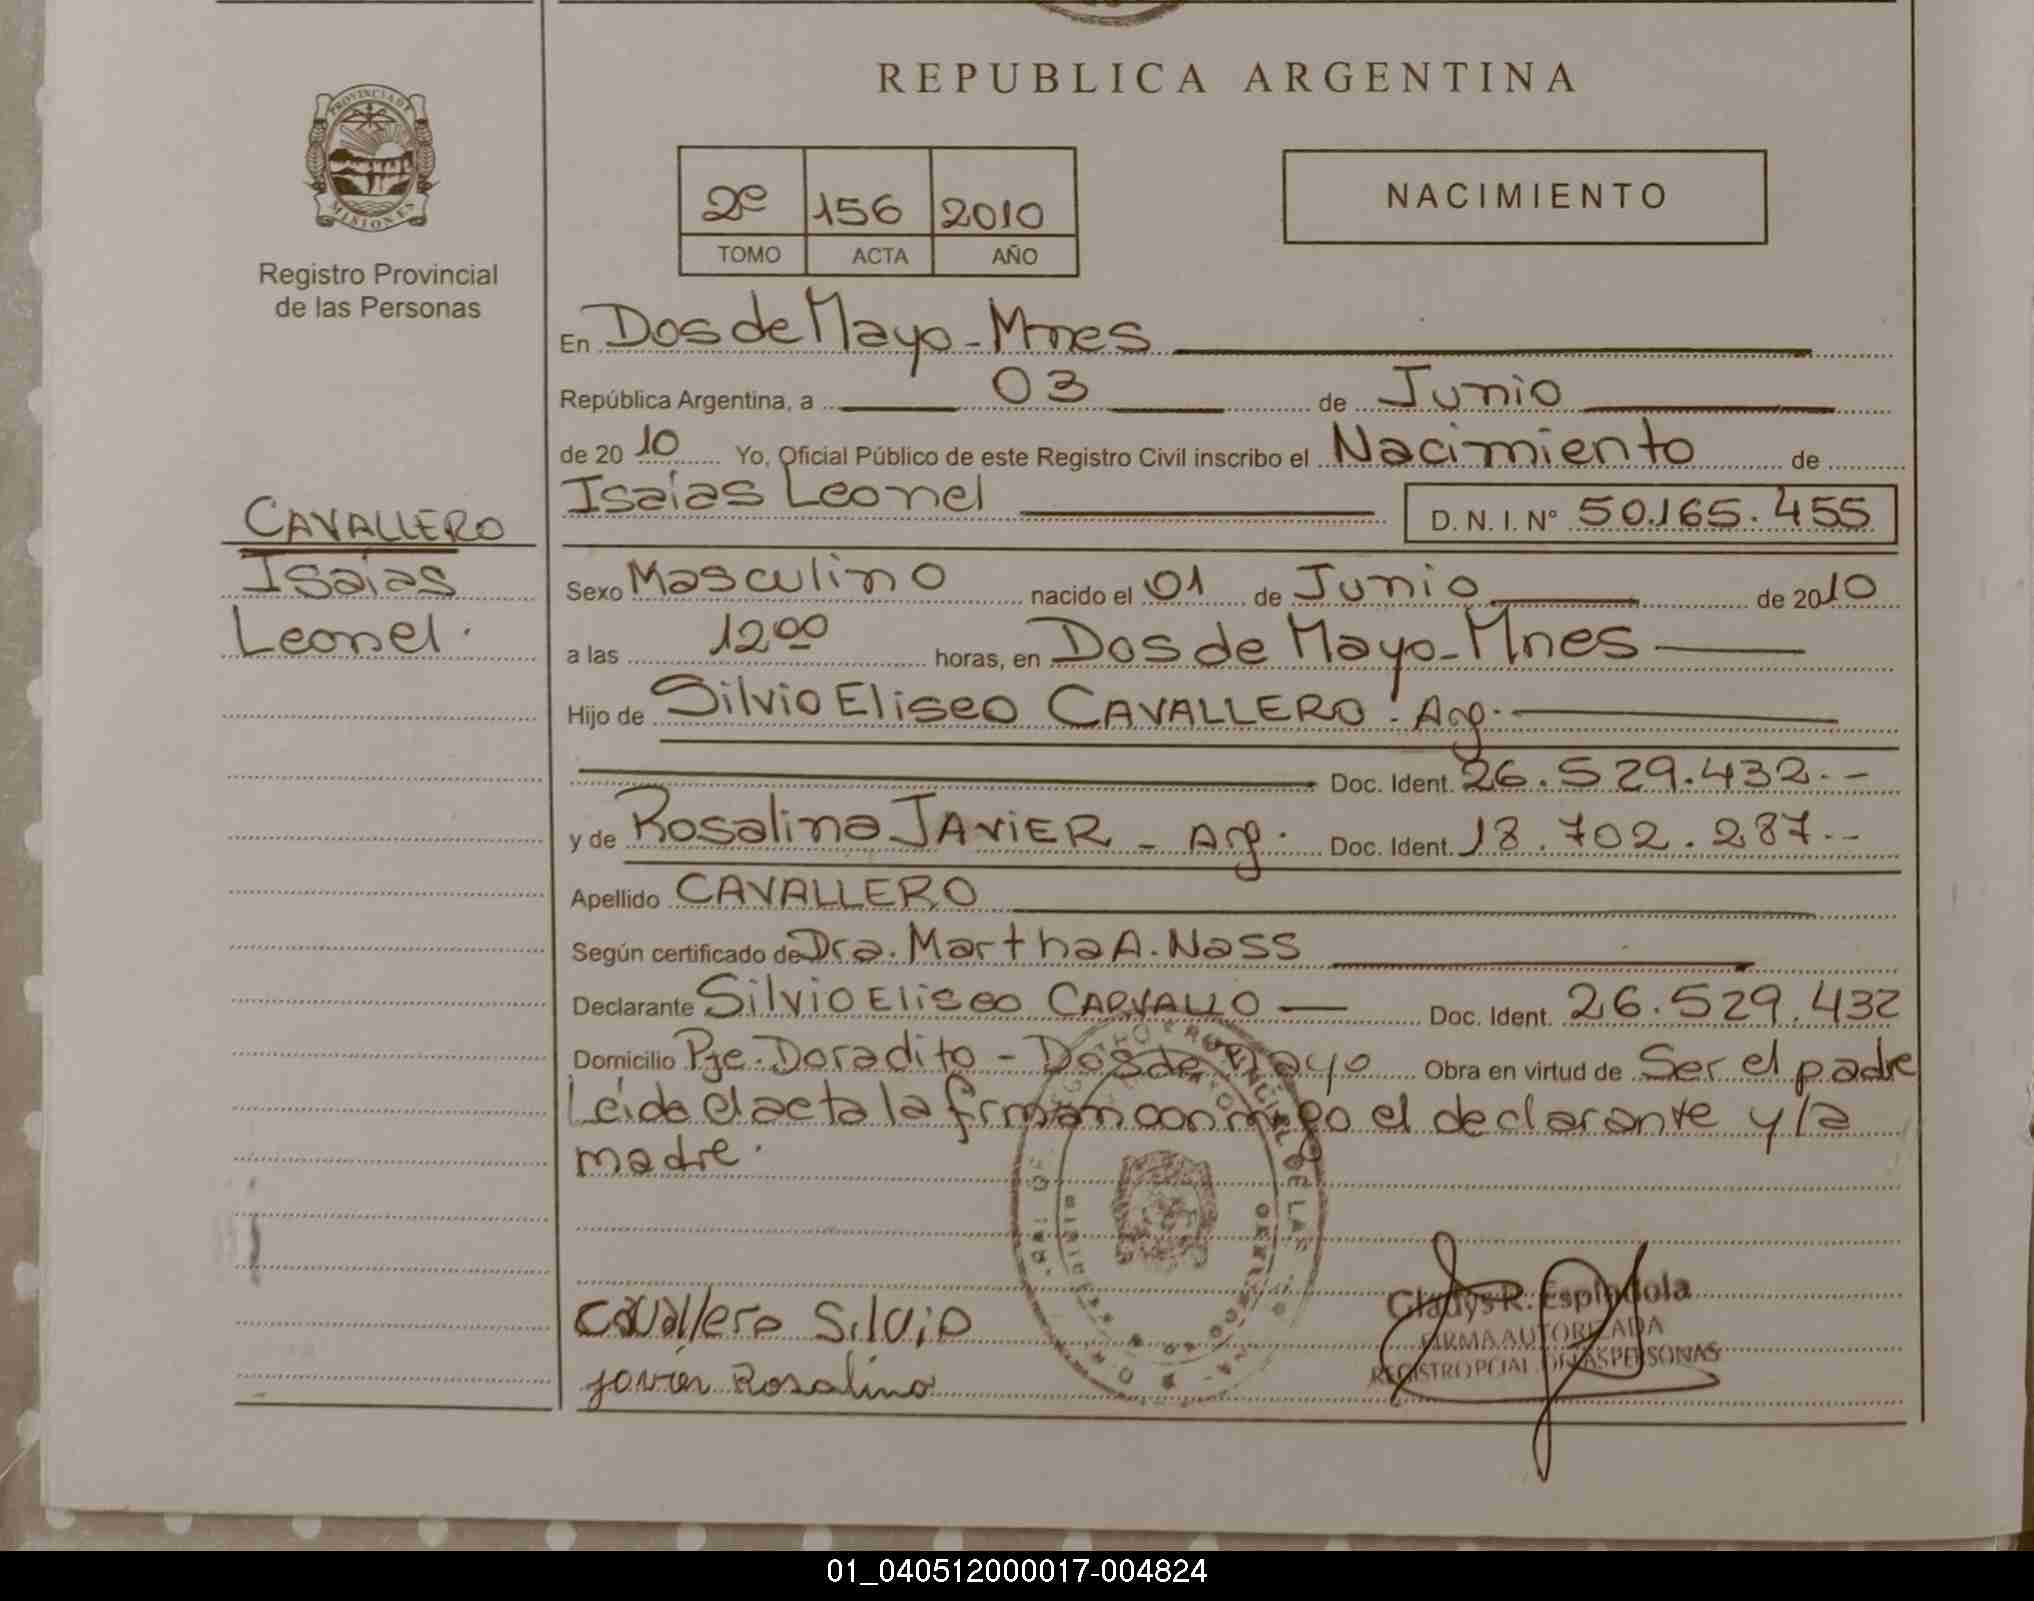 REPUBLICA ARGENTINA
PROVINCIA DE
MISIONES
Registro Provincial
de las Personas
2º 156 2010
TOMO ACTA AÑO
NACIMIENTO
En Dos de Mayo - Mnes
República Argentina, a 03 de Junio
de 20 10 Yo, Oficial Público de este Registro Civil inscribo el Nacimiento de
Isaías Leonel D. N. I. Nº 50.165.455
CAVALLERO
Isaías
Leonel.
Sexo Masculino nacido el 01 de Junio de 2010
a las 12 00 horas, en Dos de Mayo - Mnes
Hijo de Silvio Eliseo CAVALLERO. Arg.
Doc. Ident. 26.529.432.-
y de Rosalina JAVIER - Arg. Doc. Ident. 18.702.287.-
Apellido CAVALLERO
Según certificado de Dra. Martha A. Nass
Declarante Silvio Eliseo CARVALLO Doc. Ident. 26.529.432
Domicilio Pje. Doradito - Dos de Mayo Obra en virtud de Ser el padre
Leida el acta la firman conmigo el declarante y la
madre.
Cavallero Silvio
Javier Rosalina
Gladys R. Espindola
FIRMA AUTORIZADA
REGISTRO PCIAL. DE LAS PERSONAS
01_040512000017-004824